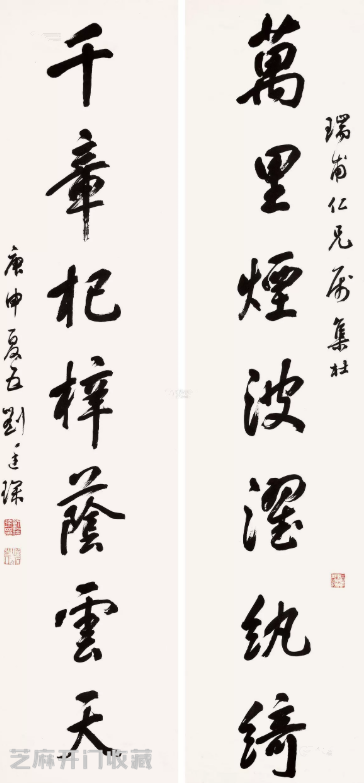 瑞甫仁兄属集杜
萬里煙波濯紈綺
千章杞梓蔭雲天
庚申夏五劉廷琛
芝麻开门收藏